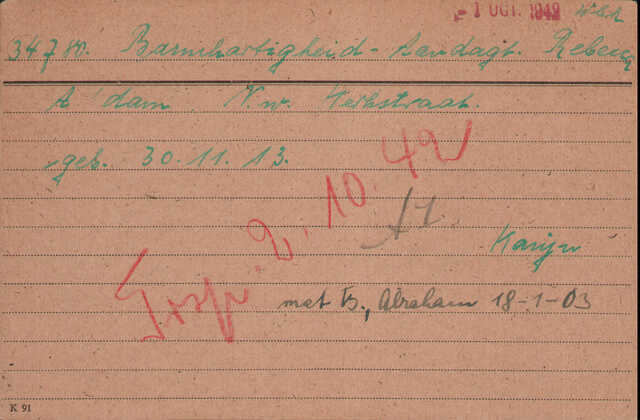 - 1 OCT. 1942
Barmhartigheid - Aandagt. Rebecca
A'dam N.w. Kerkstraat.
geb. 30.11.13.
2.10.42
met B., Abraham 18-1-03
K 91